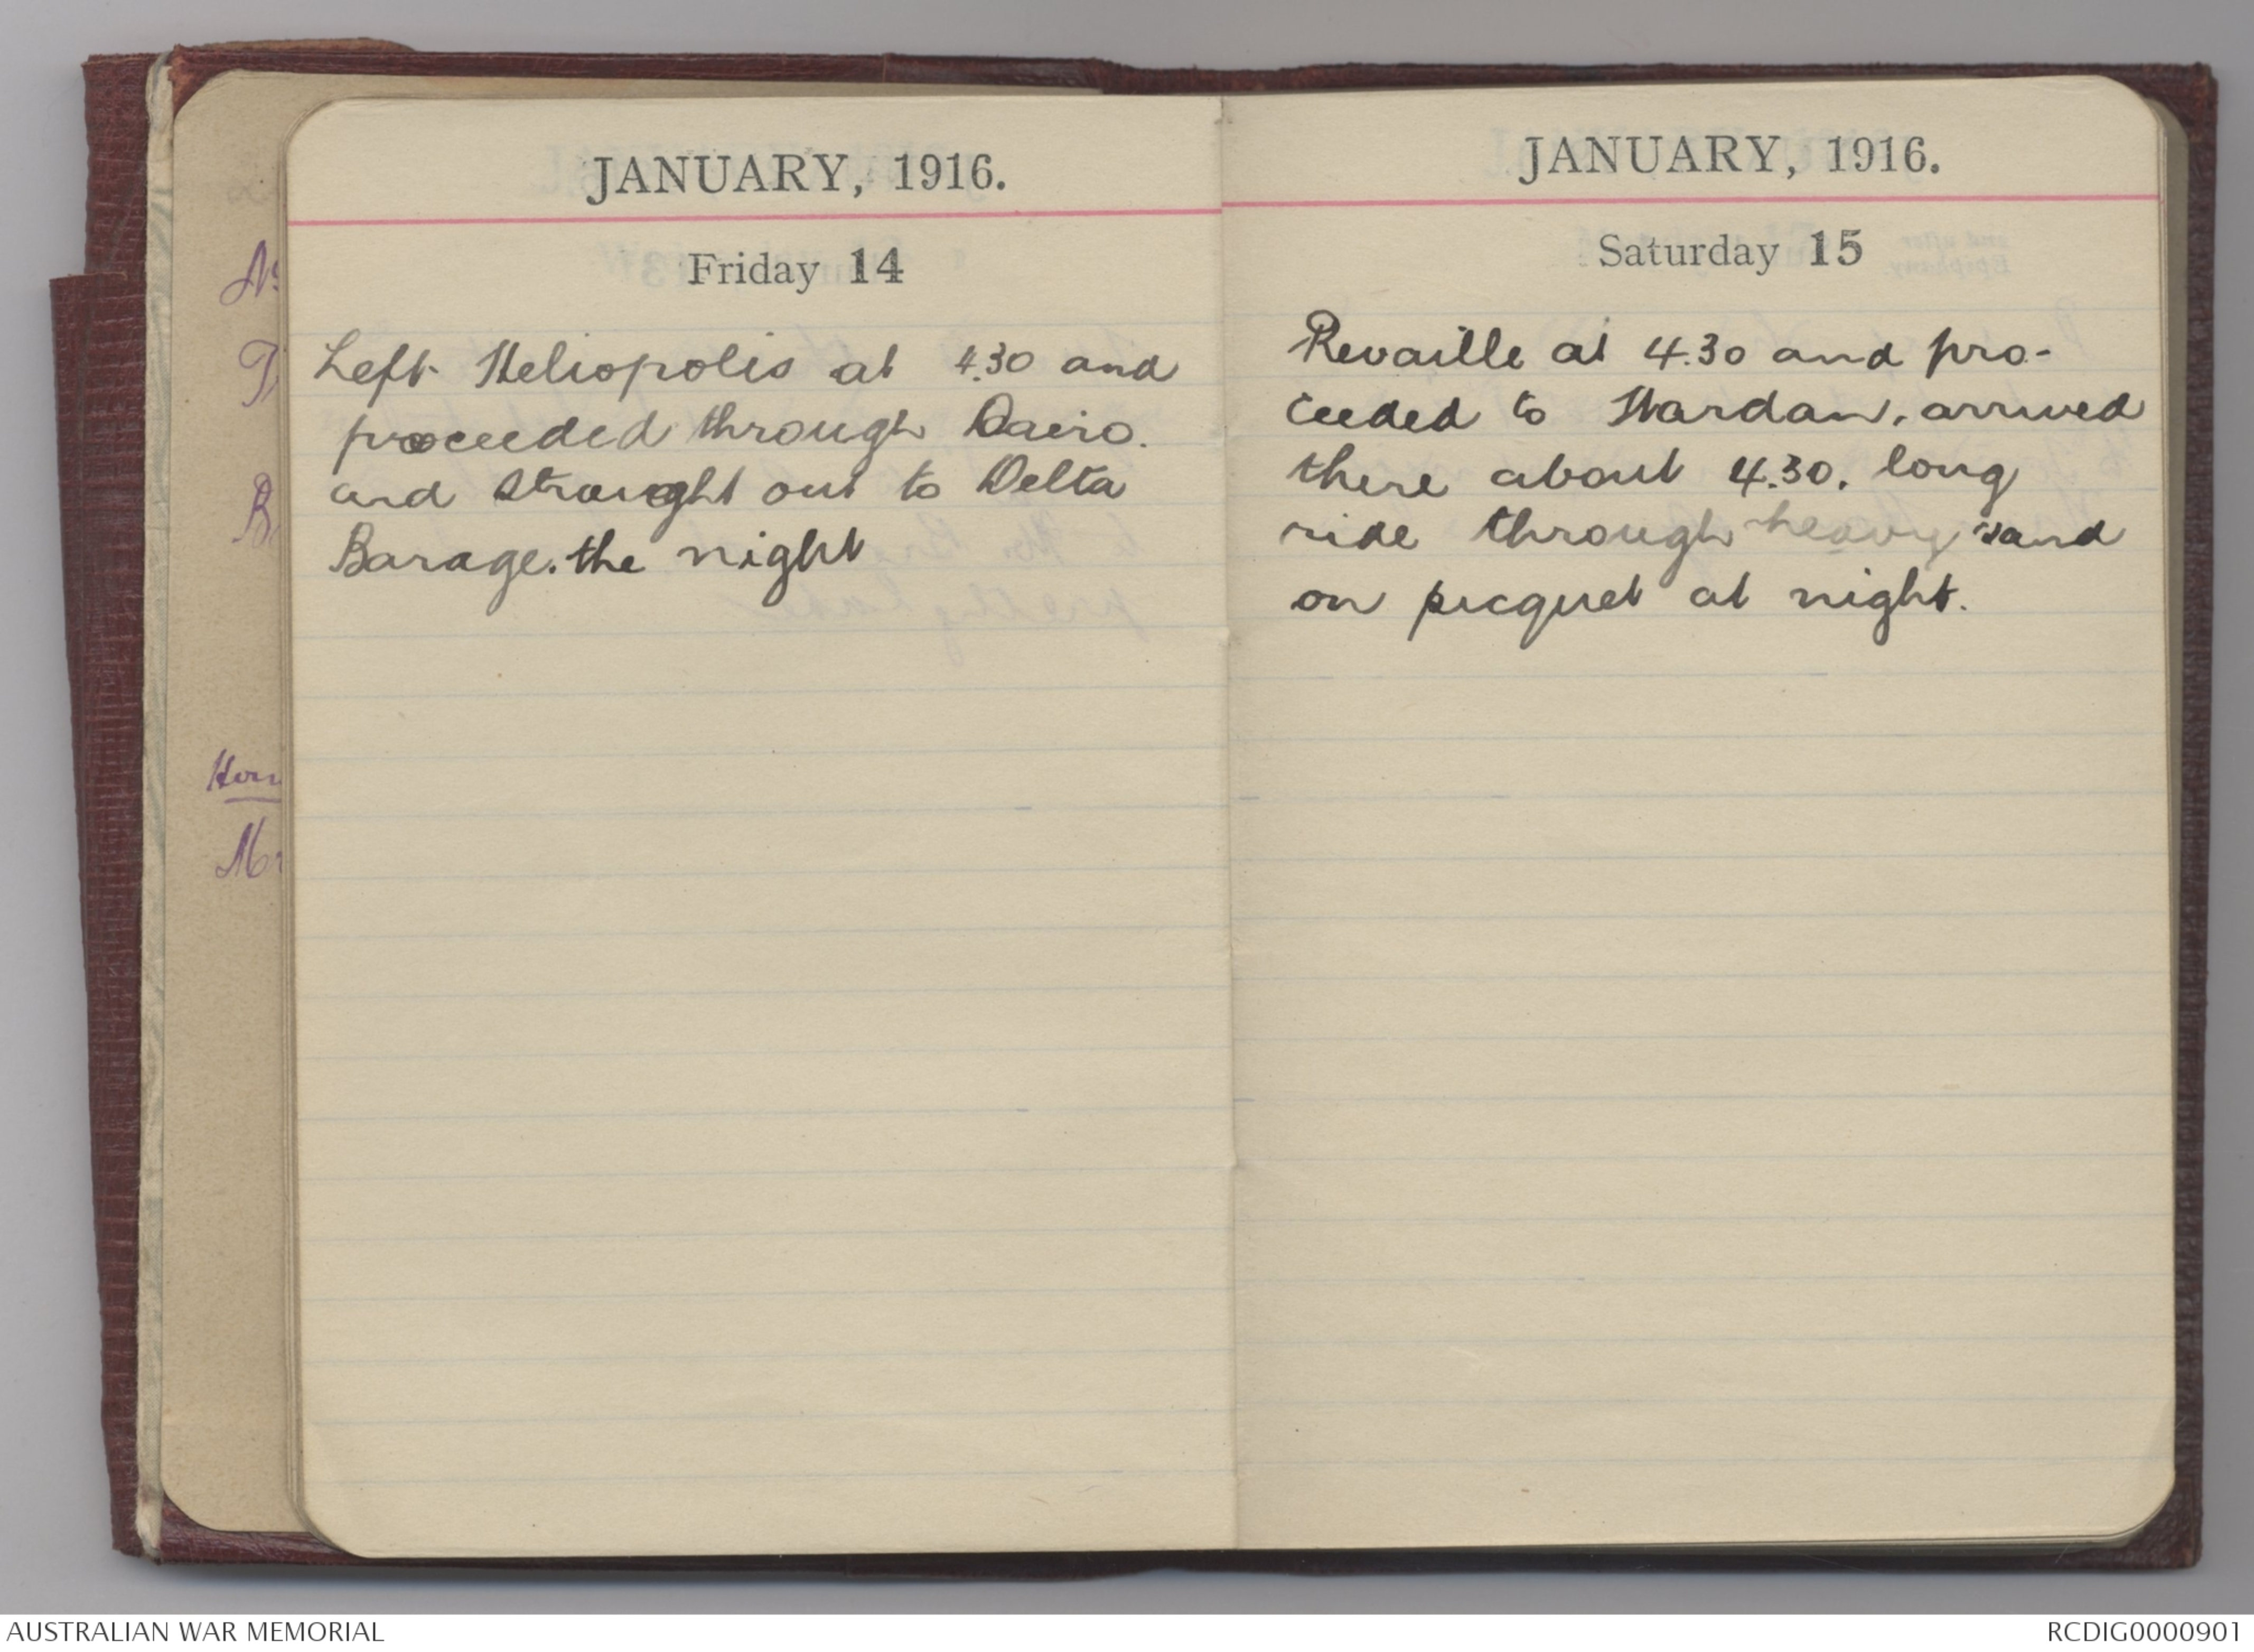 JANUARY, 1916.
Friday 14
Left Heliopolis at 4.30 and
proceeded through Cairo.
and straight out to Delta
Barage. the night
JANUARY, 1916.
Saturday 15
Revaille at 4.30 and pro-
ceeded to Wardan, arrived
there about 4.30. long
ride through heavy sand
on picquet at night.
AUSTRALIAN WAR MEMORIAL
RCDIG0000901